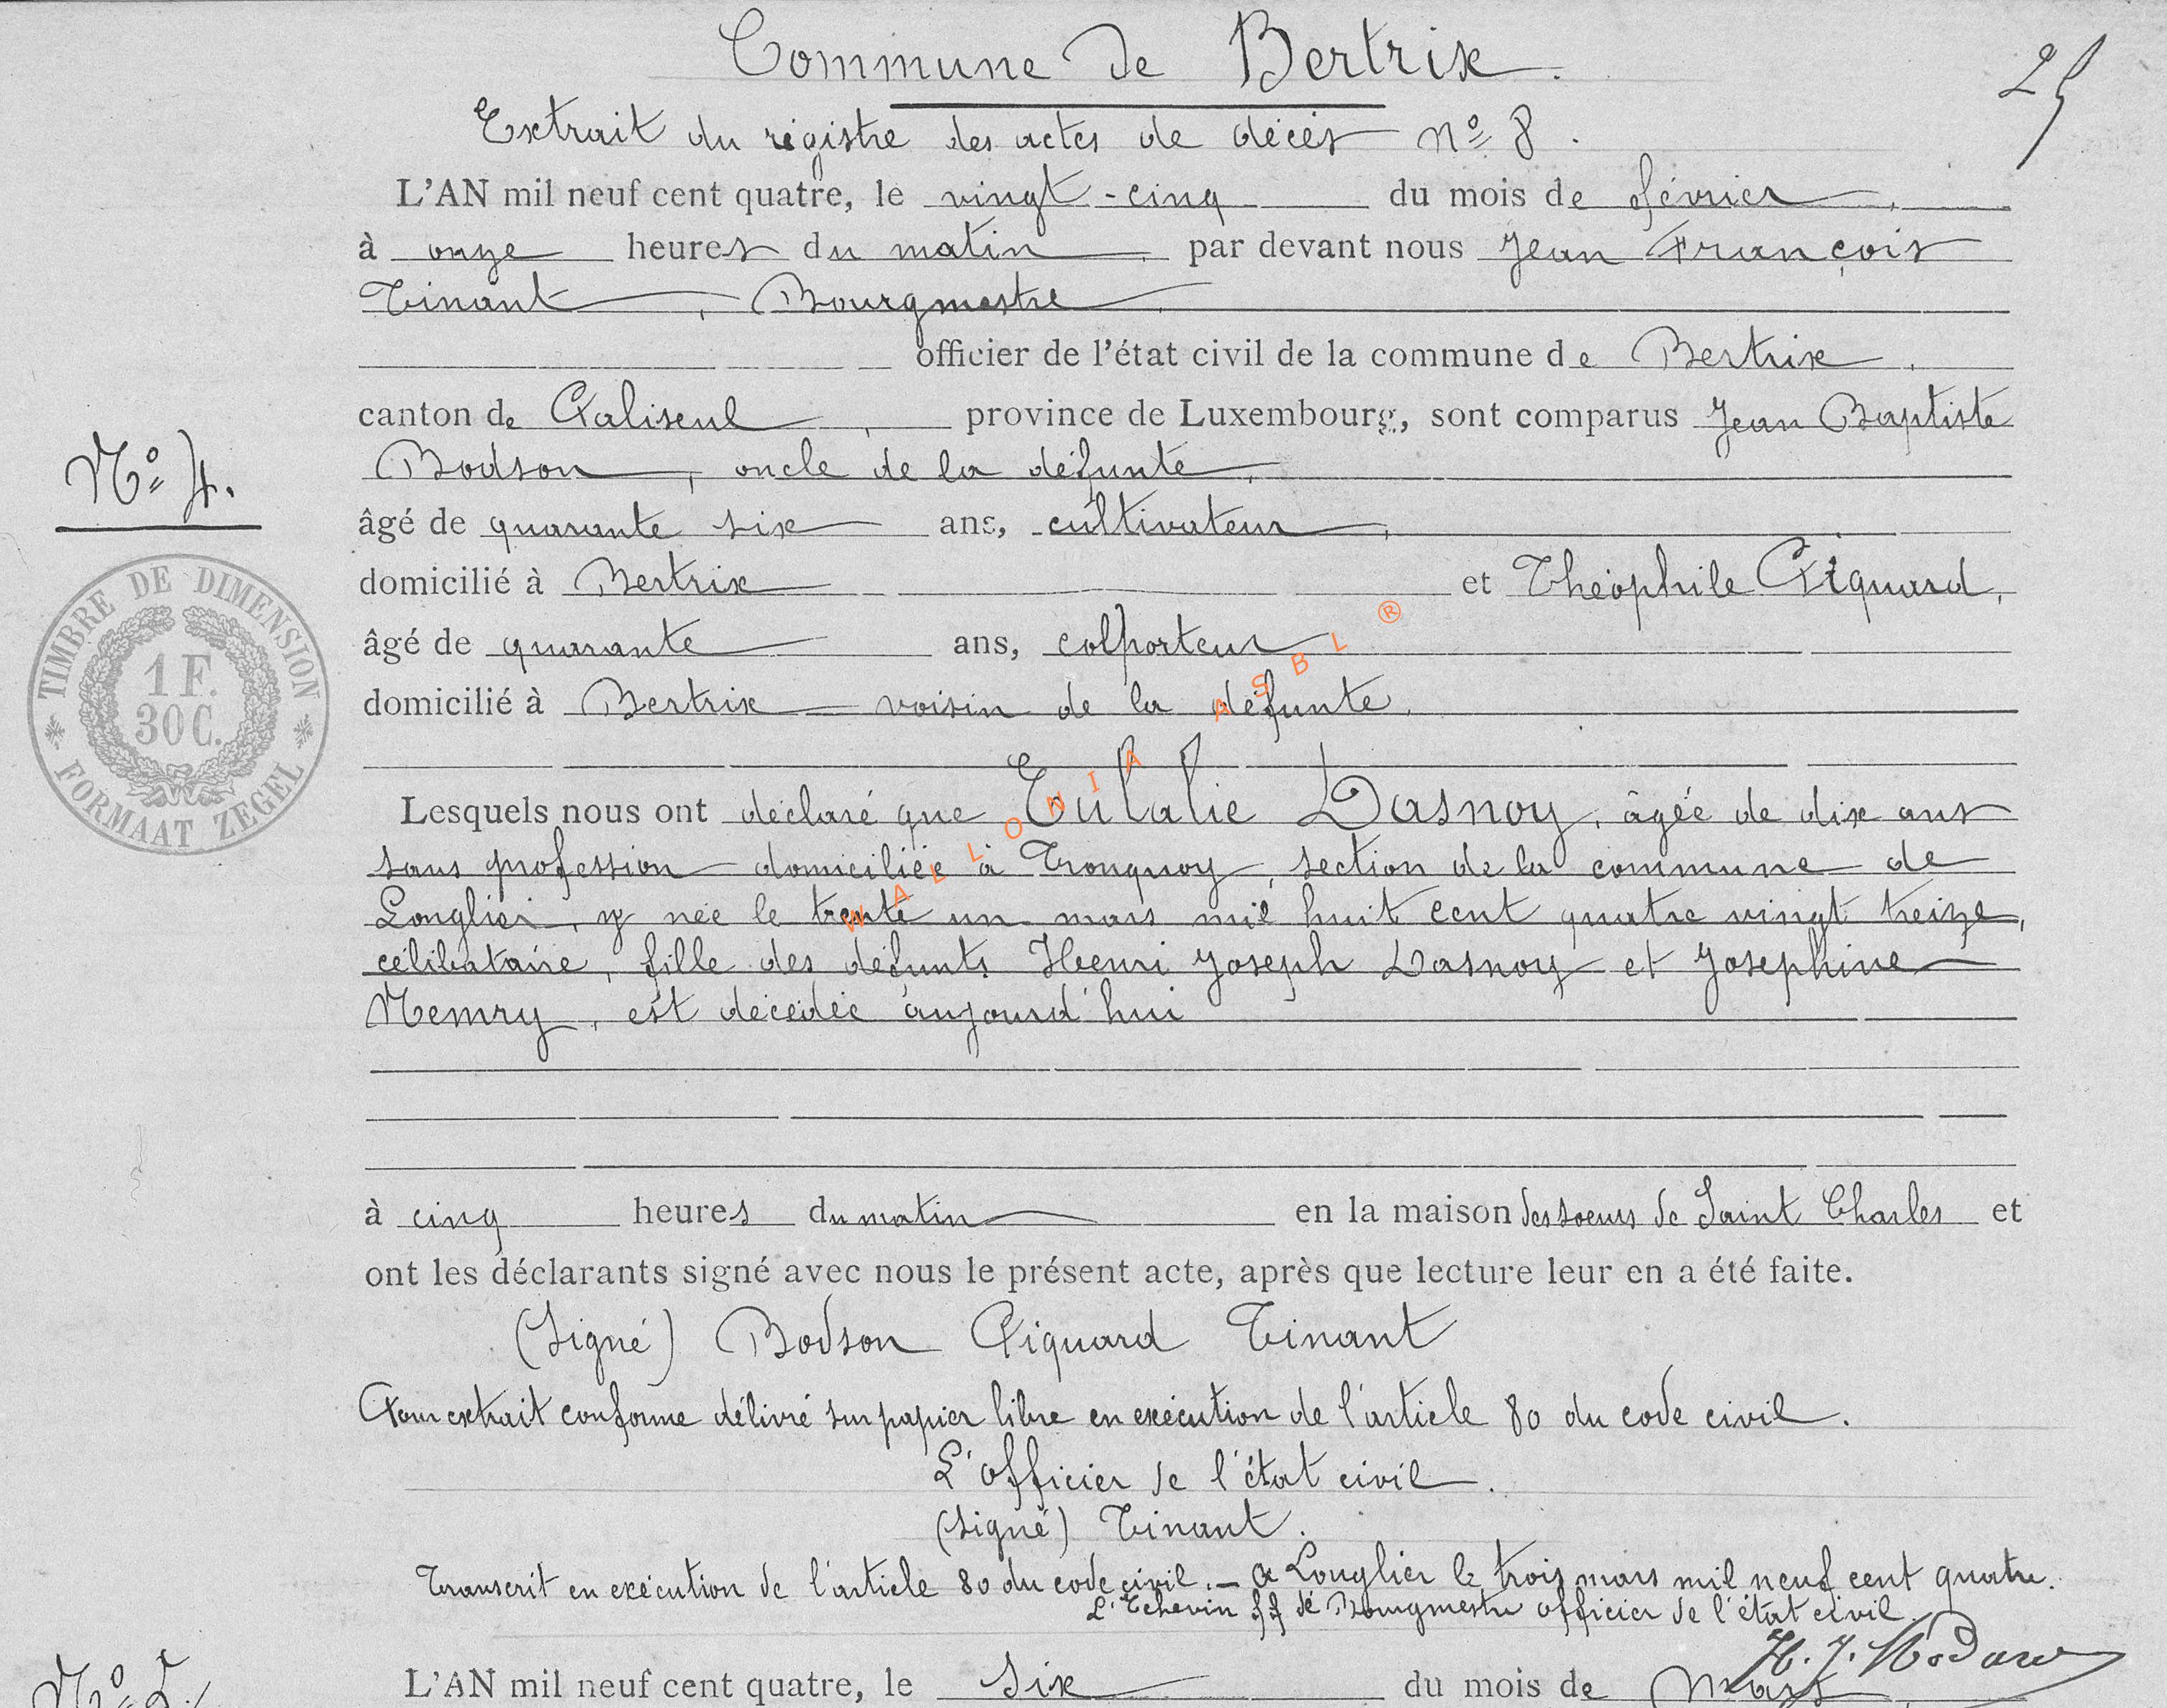 Commune de Bertrix.
25
Extrait du régistre des actes de décès nº 8.
L'AN mil neuf cent quatre, le vingt-cinq du mois de février,
à onze heures du matin, par devant nous Jean François
Tinant, Bourgmestre,
officier de l'état civil de la commune de Bertrix,
canton de Paliseul, province de Luxembourg, sont comparus Jean Baptiste
Bodson, oncle de la défunte,
Nº 4.
âgé de quarante six ans, cultivateur,
domicilié à Bertrix et Théophile Piquard,
âgé de quarante ans, colporteur
domicilié à Bertrix voisin de la défunte.
TIMBRE DE DIMENSION
1 F.
30 C.
FORMAAT ZEGEL
WALLONIA ASBL ®
Lesquels nous ont déclaré que Eulalie Dasnoy, âgée de dix ans
sans profession domiciliée à Tronquoy, section de la commune de
Longlier, y née le trente un mars mil huit cent quatre vingt treize,
célibataire, fille des défunts Henri Joseph Dasnoy et Joséphine
Nemry, est décédée aujourd'hui
à cinq heures du matin en la maison des soeurs de Saint Charles et
ont les déclarants signé avec nous le présent acte, après que lecture leur en a été faite.
(signé) Bodson Piquard Tinant
Pour extrait conforme délivré sur papier libre en exécution de l'article 80 du code civil.
L'officier de l'état civil.
(signé) Tinant.
Transcrit en exécution de l'article 80 du code civil. — A Longlier le trois mars mil neuf cent quatre.
L'Echevin ff de Bourgmestre officier de l'état civil.
H. J.
Nº 5.
L'AN mil neuf cent quatre, le six du mois de mars